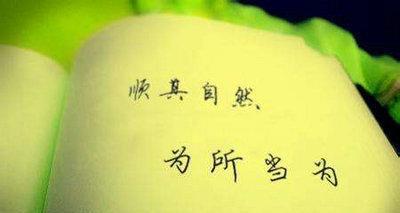 顺其自然、
为所当为